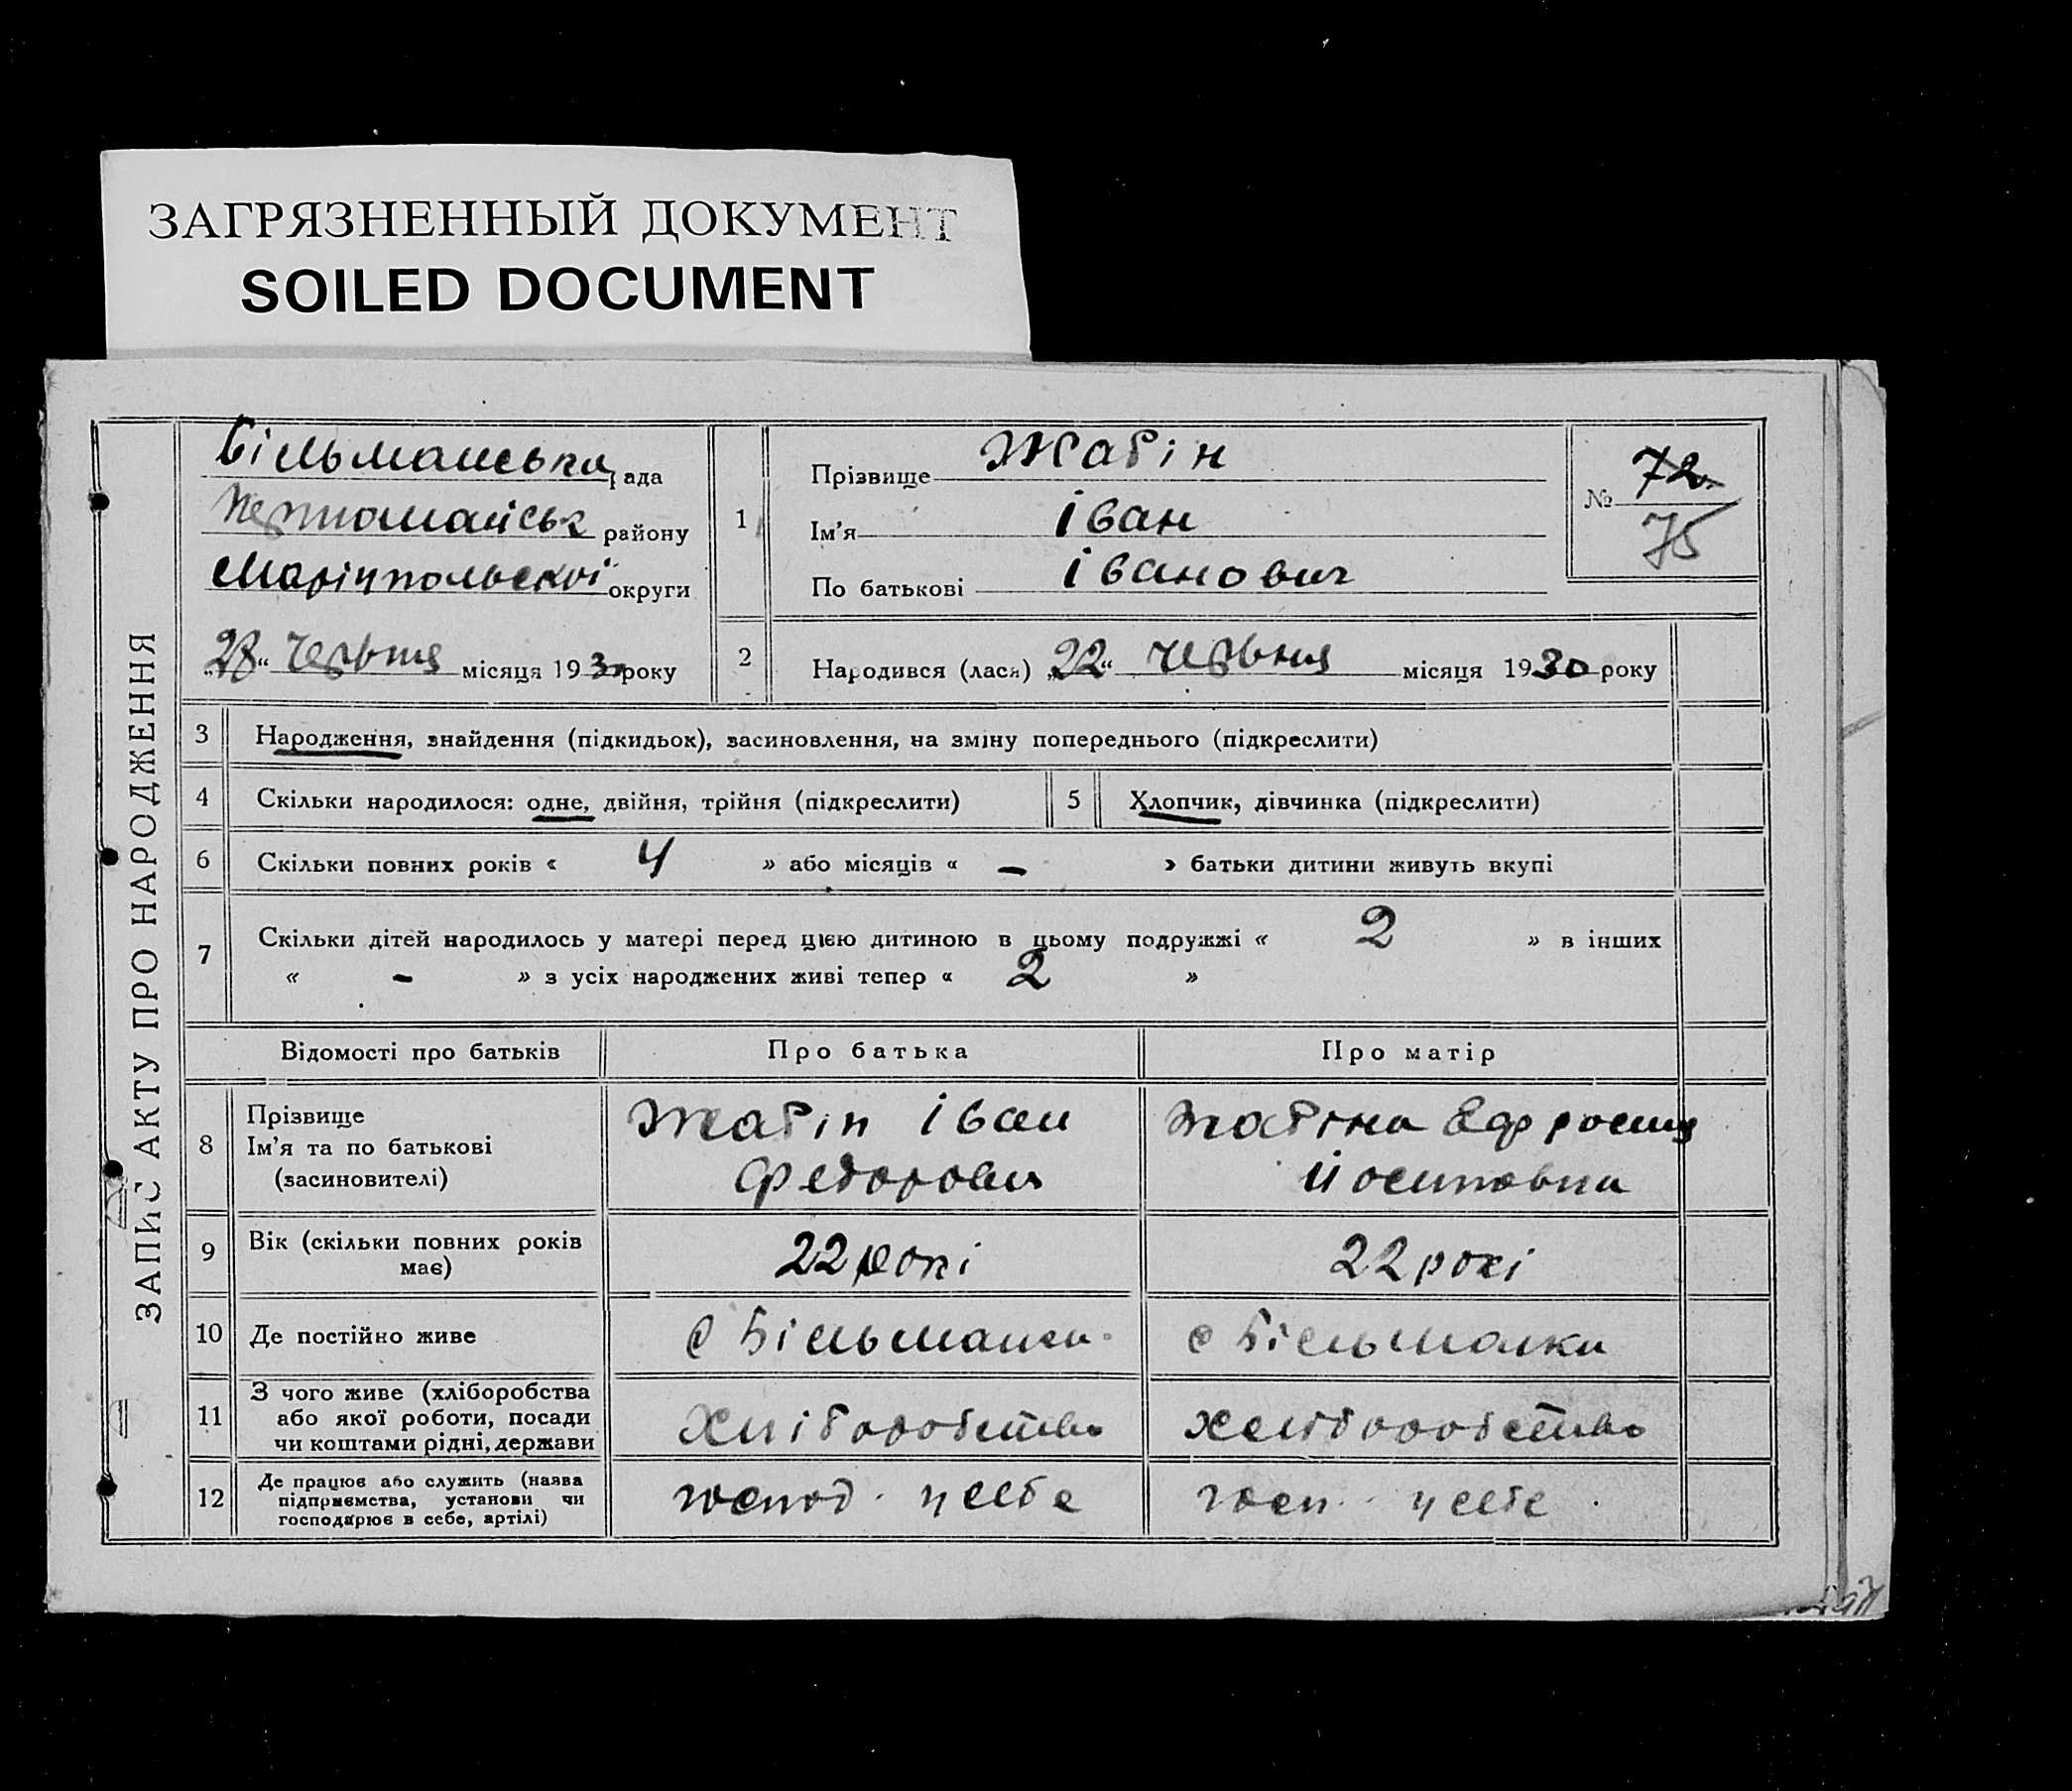 ЗАГРЯЗНЕННЫЙ ДОКУМЕНТ
SOILED DOCUMENT
ЗАПИС АКТУ ПРО НАРОДЖЕННЯ
Більманська рада
Первомайськ району
Маріупольської округи
„28“ червня місяця 1930 року
1
Прізвище Жабін
Ім’я Іван
По батькові Іванович
№ 72
75
2
Народився (лася) „22“ червня місяця 1930 року
3 Народження, знайдення (підкидьок), засиновлення, на зміну попереднього (підкреслити)
4 Скільки народилося: одне, двійня, трійня (підкреслити)
5 Хлопчик, дівчинка (підкреслити)
6 Скільки повних років « 4 » або місяців « – » батьки дитини живуть вкупі
7 Скільки дітей народилось у матері перед цією дитиною в цьому подружжі « 2 » в інших
« – » з усіх народжених живі тепер « 2 »
Відомості про батьків Про батька Про матір
8
Прізвище
Ім’я та по батькові
(засиновителі)
Жабін Іван
Федорович
Жабіна Ефросиня
Йосиповна
9
Вік (скільки повних років
має)
22 рокі
22 рокі
10 Де постійно живе
с Більманка
с Більманка
11
З чого живе (хліборобства
або якої роботи, посади
чи коштами рідні, держави
Хліборобство
хліборобство
12
Де працює або служить (назва
підприємства, установи чи
господарює в себе, артілі)
господ. у себе
госп. у себе